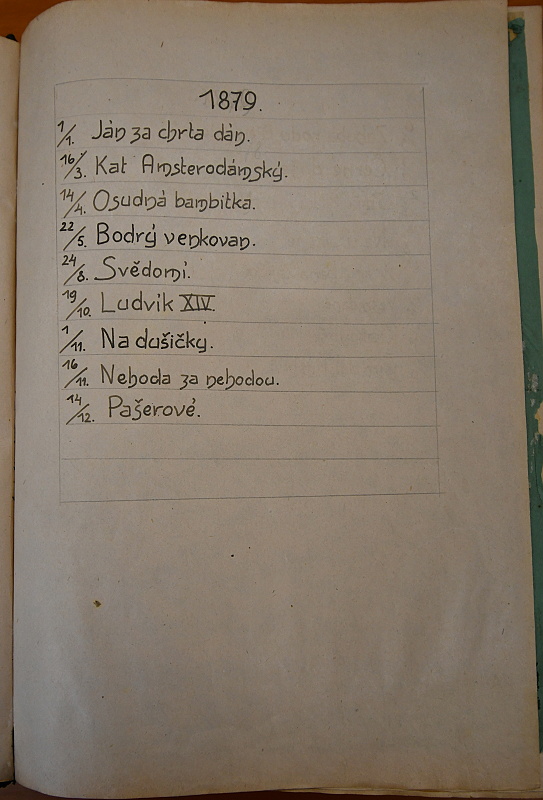 1879.
1/1. Ján za chrta dán.
16/3. Kat Amsterodámský.
14/4. Osudná bambitka.
22/5. Bodrý venkovan.
24/8. Svědomí.
19/10. Ludvik XIV.
1/11. Na dušičky.
16/11. Nehoda za nehodou.
14/12. Pašerové.